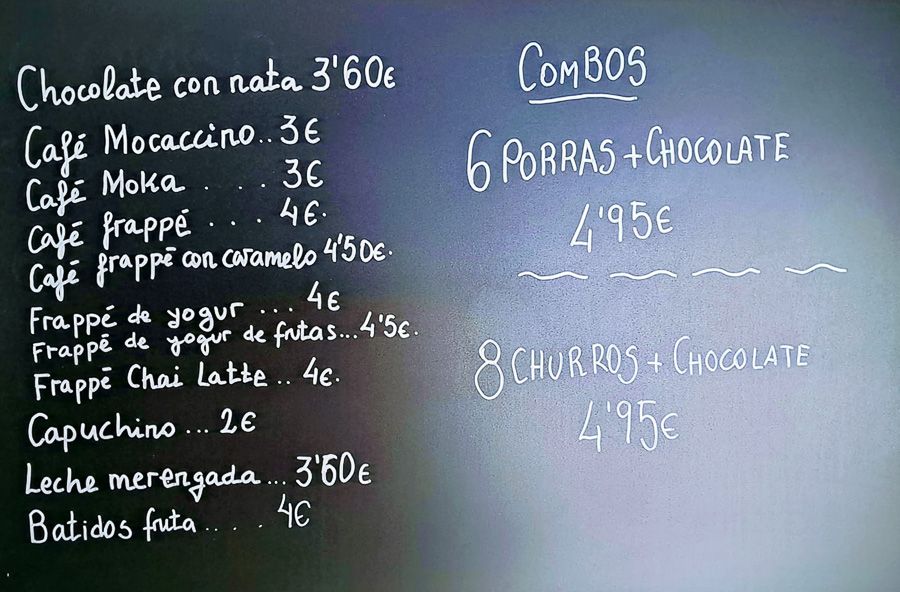 Chocolate con nata 3'60€
Café Mocaccino.. 3€
Café Moka . . . . 3€
Café frappé . . . . 4€.
Café frappē con caramelo 4'50€.
Frappé de yogur ... 4€
Frappé de yogur de frutas... 4'5€.
Frappé Chai Latte .. 4€.
Capuchino ... 2€
Leche merengada ... 3'60€
Batidos fruta . . . . 4€
COMBOS
6 PORRAS + CHOCOLATE
4'95€
8 CHURROS + CHOCOLATE
4'95€